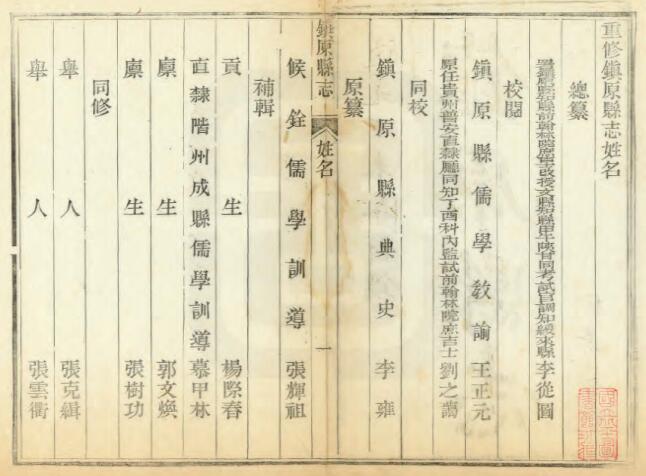 重修鎮原縣志姓名
總纂
署鎮原縣知縣前翰林院庶吉士改授文縣知縣甲午陝甘同考試官調知綏來縣李從圖
校閱
鎮原縣儒學教諭王正元
原任貴州普安直隸廳同知丁酉科內監試前翰林院庶吉士劉之藹
同校
鎮原縣典史李雍
原纂
鎮原縣志 姓名 一
候銓儒學訓導張輝祖
補輯
貢生楊際春
直隸階州成縣儒學訓導慕甲林
廩生郭文煥
廩生張樹功
同修
舉人張克緝
舉人張雲衢